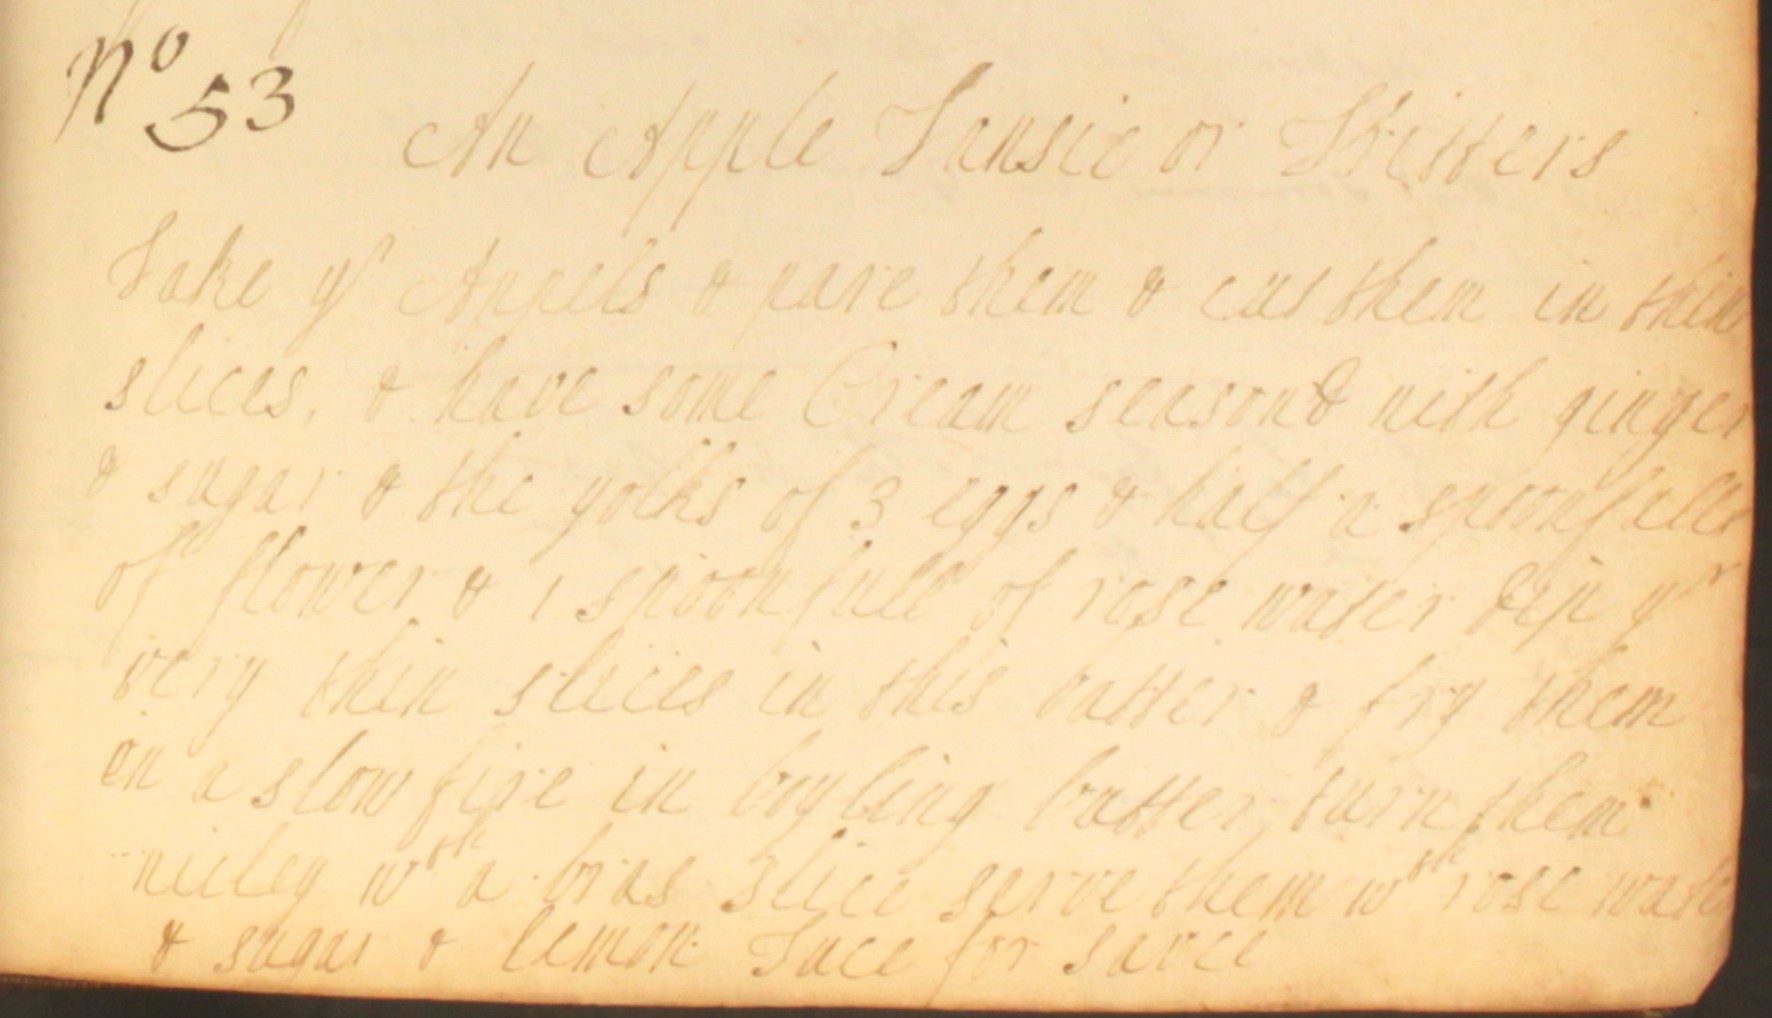 No 53
An Apple Tansie or Fritters
Take yr Appels & pare them & cut them in thin
slices, & have some Cream seasond with ginger
& sugar & the yolks of 3 eggs & half a spoonfull
of flower & 1 spoonfull of rose water dip yr
very thin slices in this batter & fry them
on a slow fire in boyling butter turn them
nicley wth a bras slice serve them wth rose wate
& sugar & lemon Juce for sauce